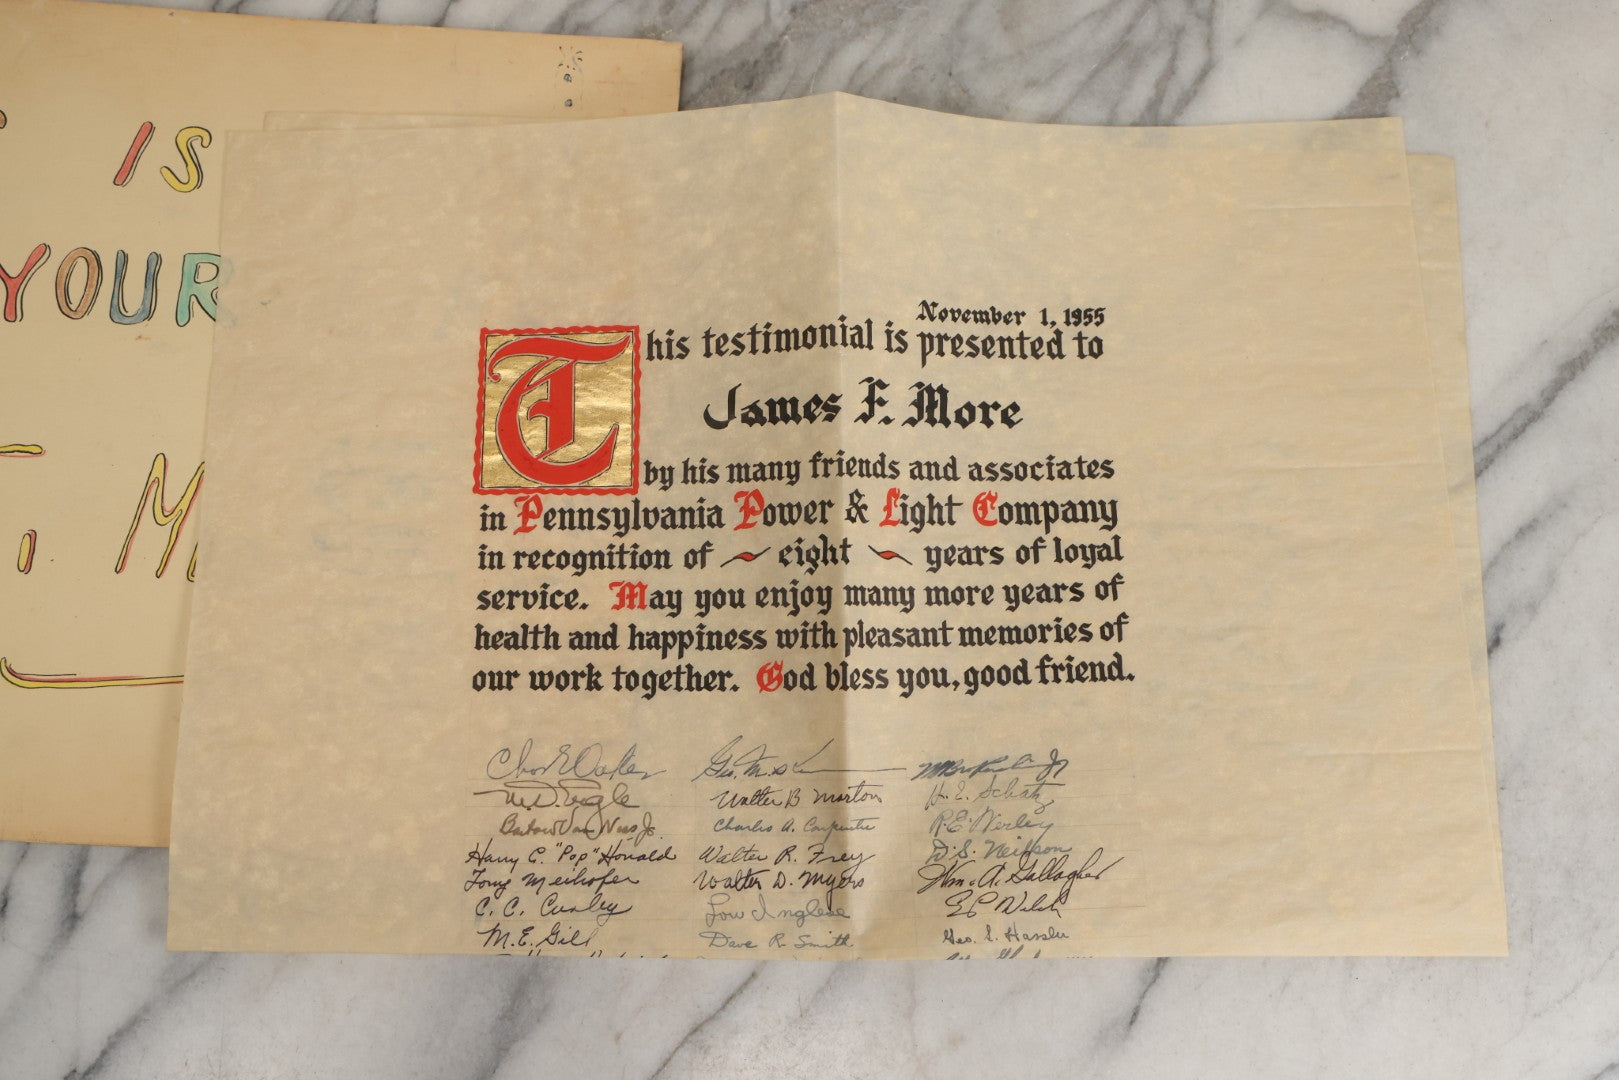 IS
YOUR
November 1, 1955
This testimonial is presented to
James F. More
by his many friends and associates
in Pennsylvania Power & Light Company
in recognition of ~ eight ~ years of loyal
service. May you enjoy many more years of
health and happiness with pleasant memories of
our work together. God bless you, good friend.
Chas E Oakes Geo. M.
M. D. Engle Walter B Morton H. E. Schatz
Barlow Van Ness Jr. Charles A. Carpenter R. E. Werley
Harry C. "Pop" Honald Walter R. Frey D. S. Neilson
Tony Meihofer Walter D. Myers Wm. A. Gallagher
C. C. Curley Lou Inglese
M. E. Gill Dave R. Smith Geo. L. Hassler